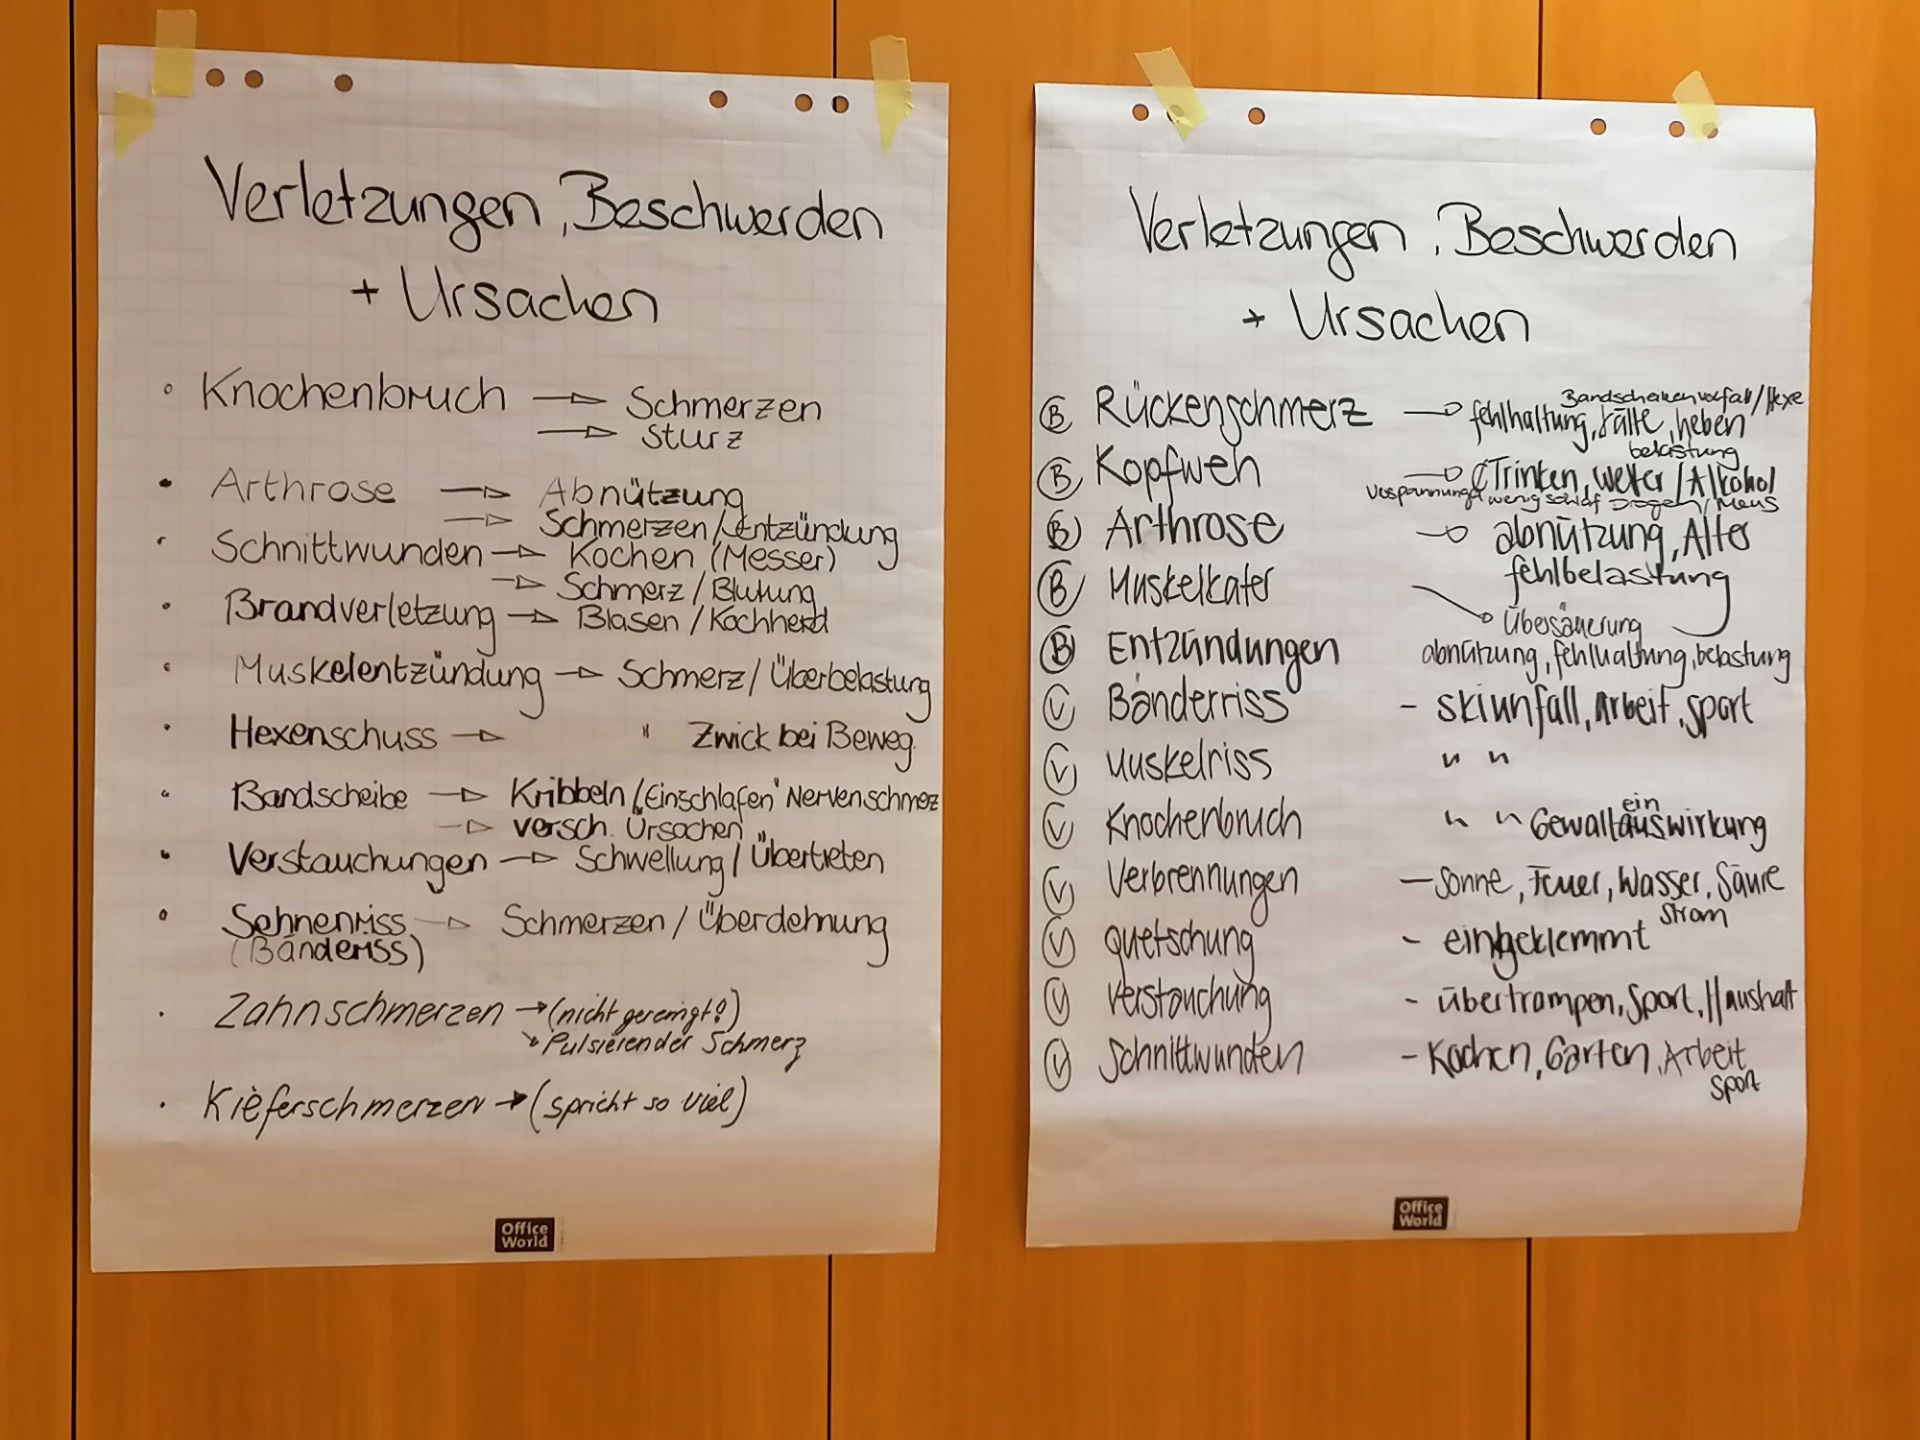 Verletzungen, Beschwerden
+ Ursachen
• Knochenbruch → Schmerzen
→ Sturz
• Arthrose → Abnützung
→ Schmerzen / Entzündung
• Schnittwunden → Kochen (Messer)
→ Schmerz / Blutung
• Brandverletzung → Blasen / Kochherd
• Muskelentzündung → Schmerz / Überbelastung
• Hexenschuss → " Zwick bei Beweg.
• Bandscheibe → Kribbeln / "Einschlafen" Nervenschmerz
→ versch. Ursachen
• Verstauchungen → Schwellung / Übertreten
• Sehnenriss → Schmerzen / Überdehnung
(Bänderriss)
• Zahnschmerzen → (nicht gereinigt?)
↘ Pulsierender Schmerz
• Kieferschmerzen → (spricht so viel)
Office
World
Verletzungen, Beschwerden
+ Ursachen
Bandscheibenvorfall / Hexe
Ⓑ Rückenschmerz → fehlhaltung, kälte, heben
belastung
Ⓑ Kopfweh → Trinken, Wetter / Alkohol
Verspannung wenig schlaf Drogen / Mens
Ⓑ Arthrose → abnützung, Alter
fehlbelastung
Ⓑ Muskelkater → Übersäuerung
Ⓑ Entzündungen abnützung, fehlhaltung, belastung
Ⓥ Bänderriss - skiunfall, Arbeit, Sport
Ⓥ Muskelriss " "
Ⓥ Knochenbruch " " Gewaltauswirkung
ein
Ⓥ Verbrennungen - Sonne, Feuer, Wasser, Säure
Strom
Ⓥ Quetschung - eingeklemmt
Ⓥ Verstauchung - übertrampen, Sport, Haushalt
Ⓥ Schnittwunden - Kochen, Garten, Arbeit
Sport
Office
World